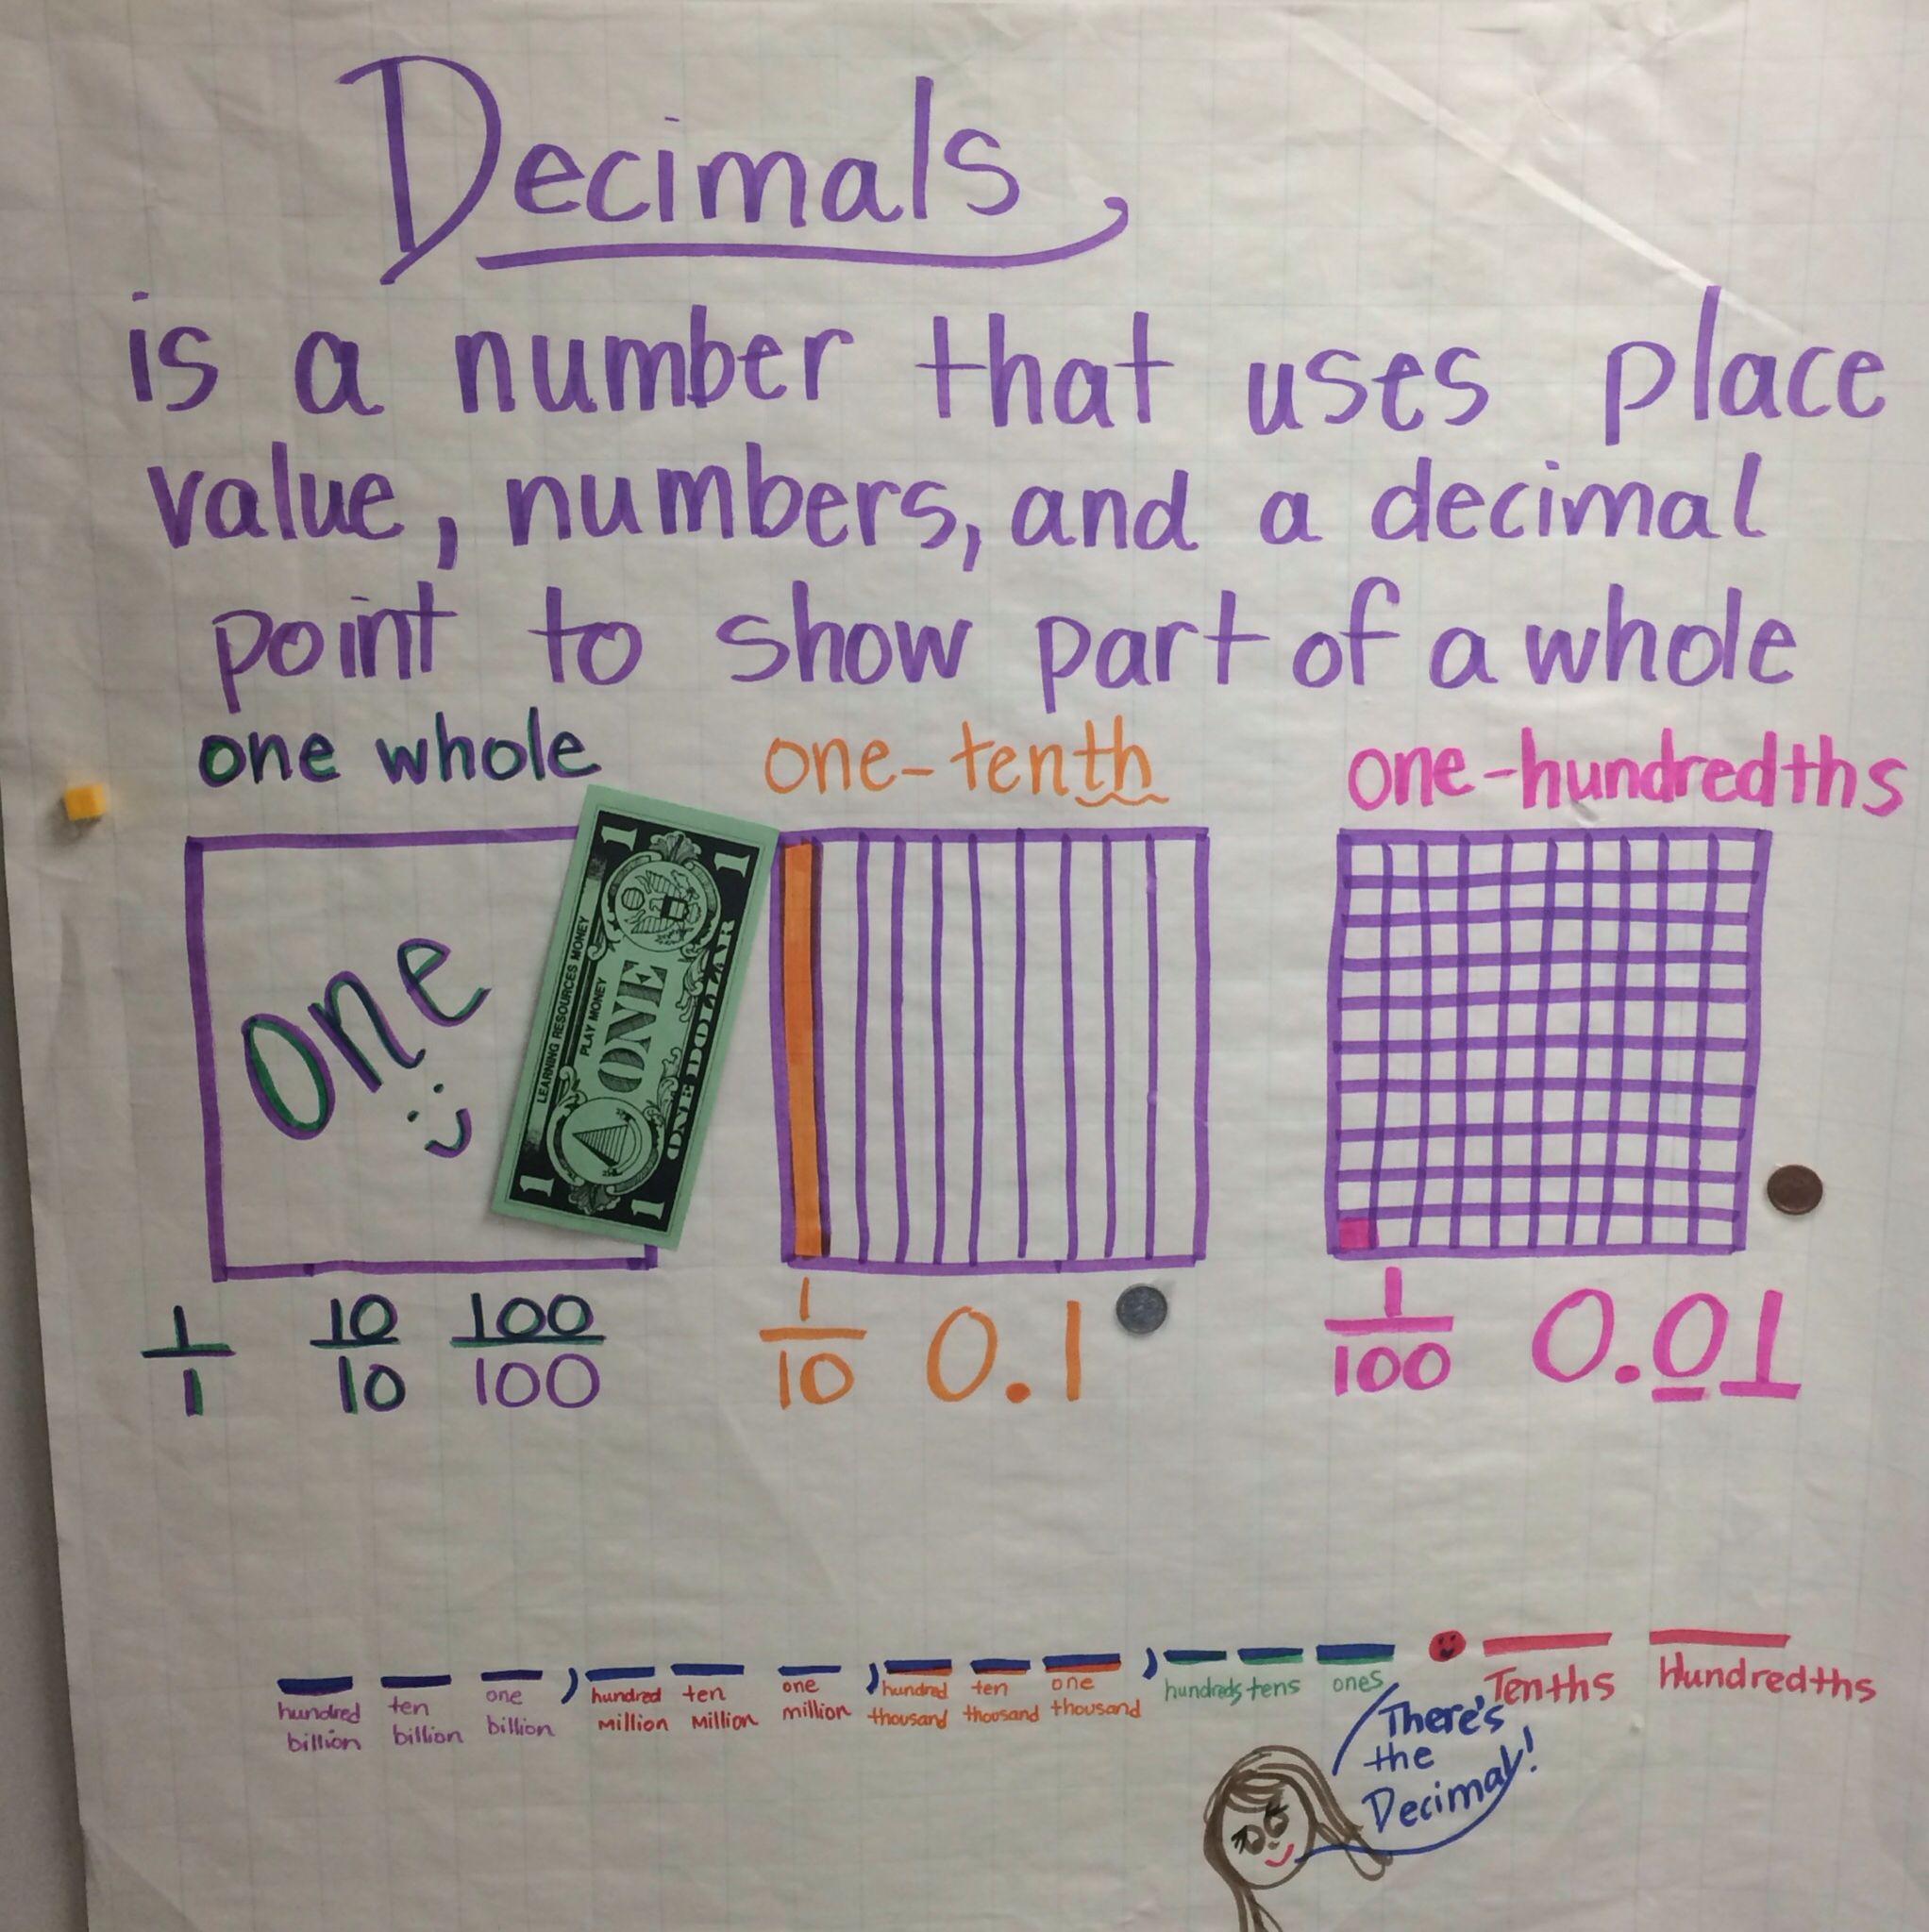 Decimals
is a number that uses place
value, numbers, and a decimal
point to show part of a whole
one whole
one-tenth
one-hundredths
one
1
1
LEARNING RESOURCES MONEY
PLAY MONEY
ONE
ONE DOLLAR
1
1
1/1 10/10 100/100
1/10 0.1
1/100 0.01
hundred billion
ten billion
one billion
,
hundred million
ten Million
one million
,
hundred thousand
ten thousand
one thousand
,
hundreds
tens
ones
Tenths
Hundredths
There's
the
Decimal!